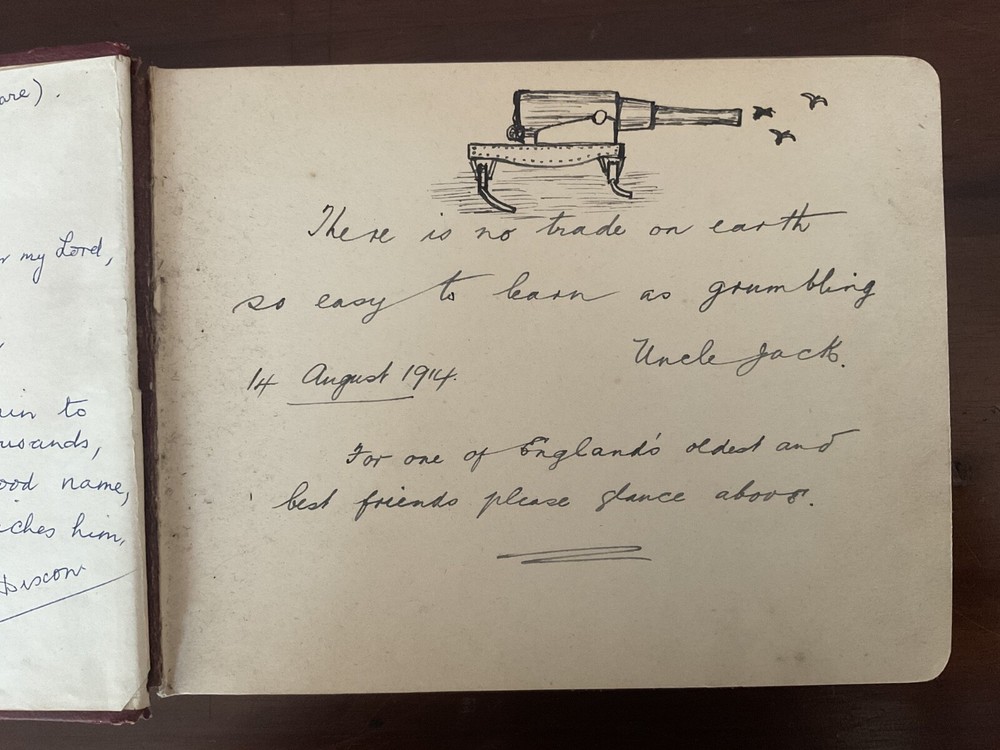 are).
my Lord,
to
ousands,
ood name,
ches him,
There is no trade on earth
so easy to learn as grumbling
Uncle Jack.
14 August 1914.
For one of England's oldest and
best friends please glance above.